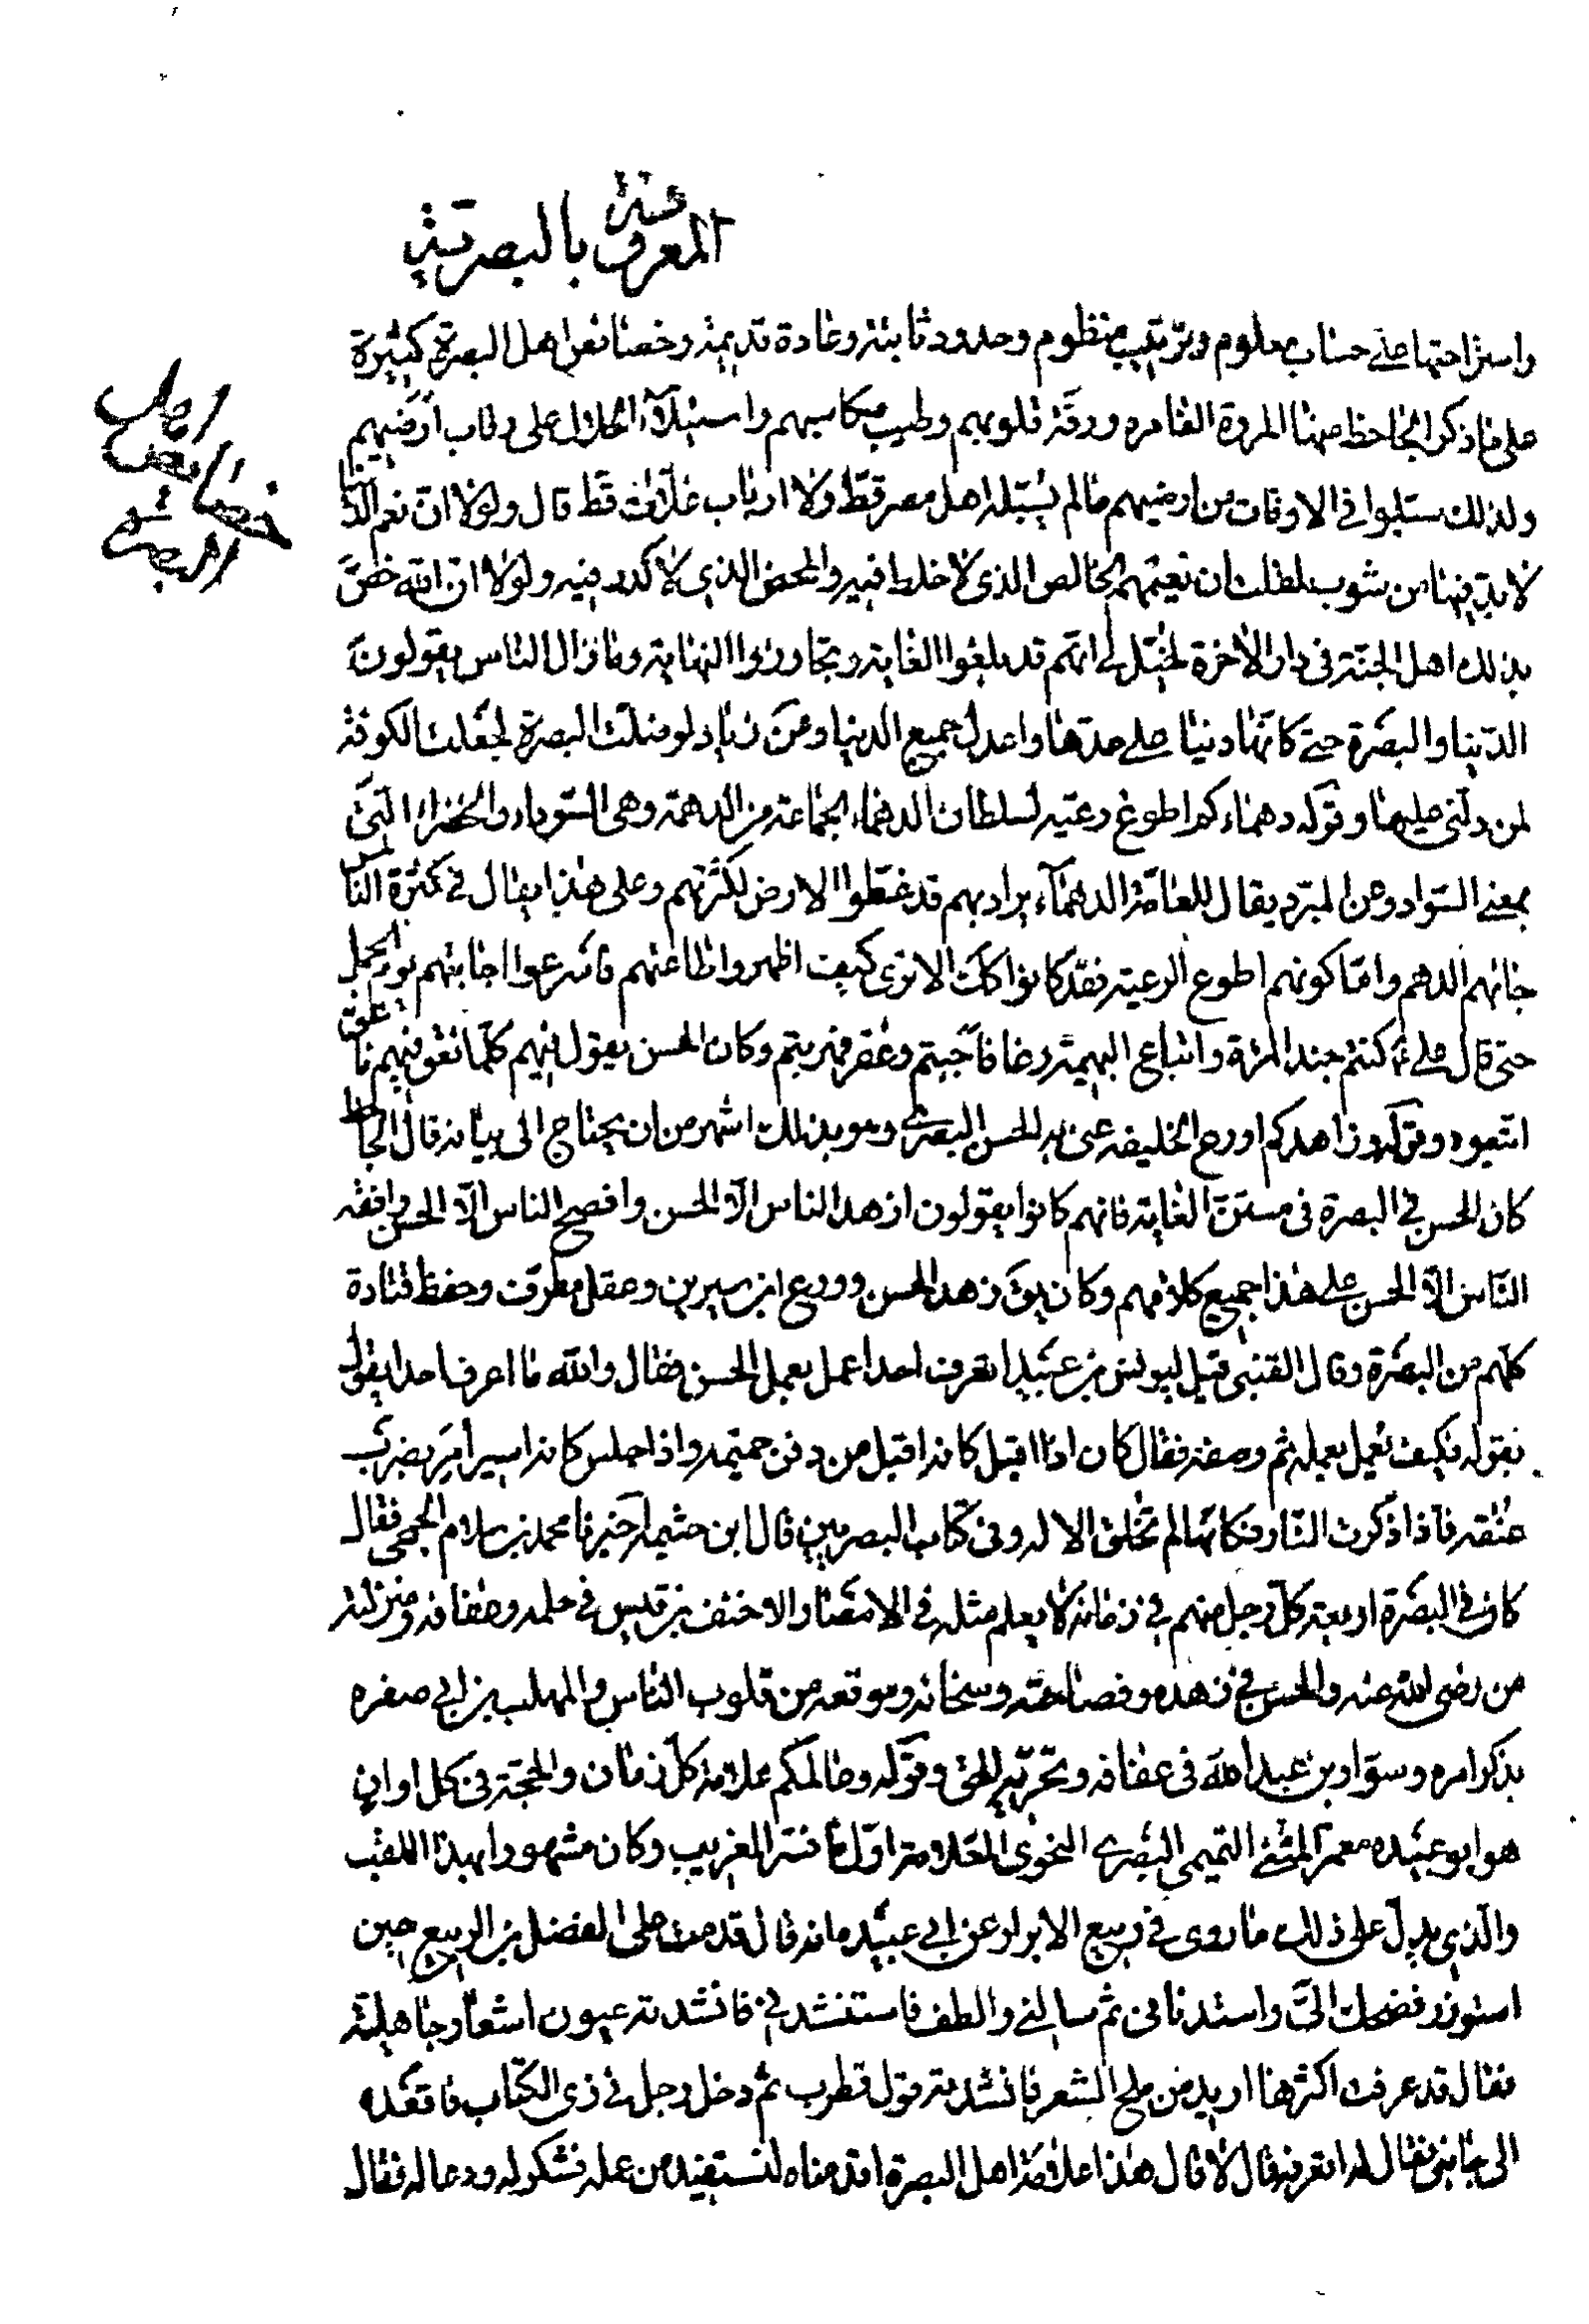 المعروفة بالبصرية
واستراحتها على حساب معلوم وترتيب منظوم وحدود ثابتة وعادة قديمة وخصائص اهل البصرة كثيرة
على ما ذكر الجاحظ منها المروة الغامرة ورقة قلوبهم وطيب مكاسبهم واستيلاء الحلال على رقاب ارضيهم
ولذلك ستلبوا في الاوقات من ارضيهم ما لم يسبّله اهل مصر قطّ ولا ارباب غلّات قط قال ولولا ان نعم الدنيا
لا بد فيها من شوب لظلت ان نعيمهم الخالص الذي لا خلط فيه والمحض الذي لا كدر فيه ولولا ان الله خصّ
بذلك اهل الجنّة في دار الاخرة لخيّل لي انهم قد بلغوا الغاية وتجاوزوا النهاية وما زال الناس يقولون
الدّنيا والبصرة حتى كانّها دنيا على حدتها واعدل جميع الدنيا وعن زياد لو ضلّت البصرة لجعلت الكوفة
لمن دلّني عليها وقوله دهماءكم اطوع رعيّة لسلطان الدهماء الجماعة من الدهمة وهي السّوداء والخضراء التي
بمعنى السّواد وعن المبرّد يقال للعامّة الدهماء يراد بهم قد غطّوا الارض لكثرتهم وعلى هذا يقال في كثرة النّاس
جائهم الدهم وامّا كونهم اطوع الرعية فقد كانوا كك الا ترى كيف اظهروا طاعتهم فاسرعوا اجابتهم يوم الجمل
حتى قال على ع كنتم جند المرئة واتباع البهيمة رغا فاجبتم وعقر فهربتم وكان الحسن يقول فيهم كلّما نعق فيهم ناعق
اتبعوه وقوله وزاهدكم اورع الخليفة عنى به الحسن البصري وهو بذلك اشهر من ان يحتاج الى بيانه قال الجاحظ
كان الحسن في البصرة في مستنّ الغاية فانهم كانوا يقولون ازهد الناس الّا الحسن وافصح الناس الّا الحسن وافقه
النّاس الّا الحسن على هذا جميع كلامهم وكان يق زهد الحسن وورع ابن سيرين وعقل مطرّف وحفظ قتادة
كلّهم من البصرة وقال القتبي قيل ليونس بن عبيد اتعرف احدا عمل بعمل الحسن فقال والله ما اعرف احدا يقول
بقوله فكيف يعمل بعمله ثم وصفه فقال كان اذا اقبل كانه اقبل من دفن حميمه واذا جلس كانه اسير امر بضرب
عنقه فاذا ذكرت النّار فكانّها لم تخلق الا له وفى كتاب البصريين قال ابن خثيمه اخبرنا محمد بن سلام الجمحى فقال
كان في البصرة اربعة كلّ رجل منهم في زمانه لا يعلم مثله في الامصار الاحنف بن قيس في حلمه وعفافه ومنزلته
من رضى الله عنه والحسن في زهده وفصاحته وسخائه وموقعه من قلوب الناس والمهلب بن ابي صفره
بذكر امره وسوّار بن عبد الله في عفافه وتحرّيه للحق وقوله وعالمكم علامة كلّ زمان والحجّة في كل اوان
هو ابو عبيده معمر المثنى التميمي البصري النحوى العلّامة اوّل ما نشر الغريب وكان مشهورا بهذا اللقب
والذي يدلّ على ذلك ما روى في ربيع الابرار عن ابي عبيده انه قال قدمت على الفضل بن الربيع حين
استوزر فضحك الىّ واستدنانى ثم سالنى والطف فاستنشدني فانشدته عيون اشعار جاهلية
فقال قد عرفت اكثرها اريد من ملح الشعر فانشدته قول قطرب ثم دخل رجل في زى الكتّاب فاقعده
الى جانبى فقال له اتعرفه قال لا قال هذا علامة اهل البصرة اقدمناه لنستفيد من علمه فشكر له ودعا له فقال